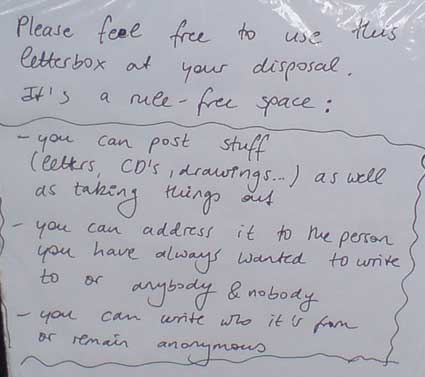 Please feel free to use this
letterbox at your disposal.
It's a rule-free space:
- you can post stuff
(letters, CD's, drawings...) as well
as taking things out
- you can address it to the person
you have always wanted to write
to or anybody & nobody
- you can write who it is from
or remain anonymous